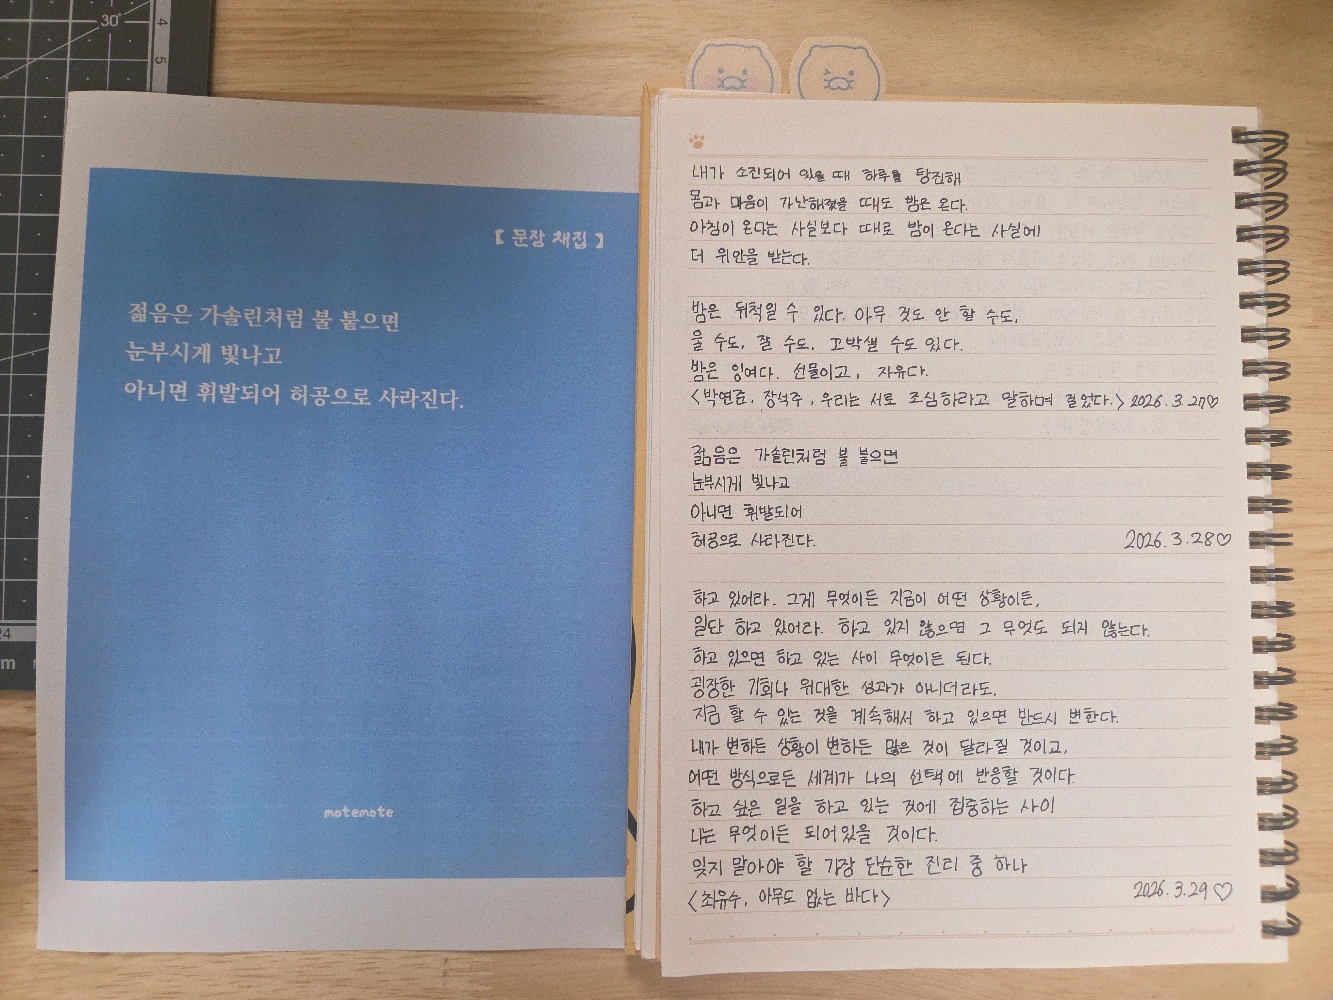 30°
4
5
24
m
【 문장 채집 】
젊음은 가솔린처럼 불 붙으면
눈부시게 빛나고
아니면 휘발되어 허공으로 사라진다.
motemote
내가 소진되어 있을 때 하루를 탕진해
몸과 마음이 가난해졌을 때도 밤은 온다.
아침이 온다는 사실보다 때로 밤이 온다는 사실에
더 위안을 받는다.
밤은 뒤척일 수 있다. 아무 것도 안 할 수도,
울 수도, 잘 수도, 꼬박샐 수도 있다.
밤은 잉여다. 선물이고, 자유다.
<박연준, 장석주, 우리는 서로 조심하라고 말하며 걸었다.> 2026.3.27♡
젊음은 가솔린처럼 불 붙으면
눈부시게 빛나고
아니면 휘발되어
허공으로 사라진다. 2026.3.28♡
하고 있어라. 그게 무엇이든 지금이 어떤 상황이든,
일단 하고 있어라. 하고 있지 않으면 그 무엇도 되지 않는다.
하고 있으면 하고 있는 사이 무엇이든 된다.
굉장한 기회나 위대한 성과가 아니더라도,
지금 할 수 있는 것을 계속해서 하고 있으면 반드시 변한다.
내가 변하든 상황이 변하든 많은 것이 달라질 것이고,
어떤 방식으로든 세계가 나의 선택에 반응할 것이다.
하고 싶은 일을 하고 있는 것에 집중하는 사이
나는 무엇이든 되어있을 것이다.
잊지 말아야 할 가장 단순한 진리 중 하나
<최유수, 아무도 없는 바다> 2026.3.29♡